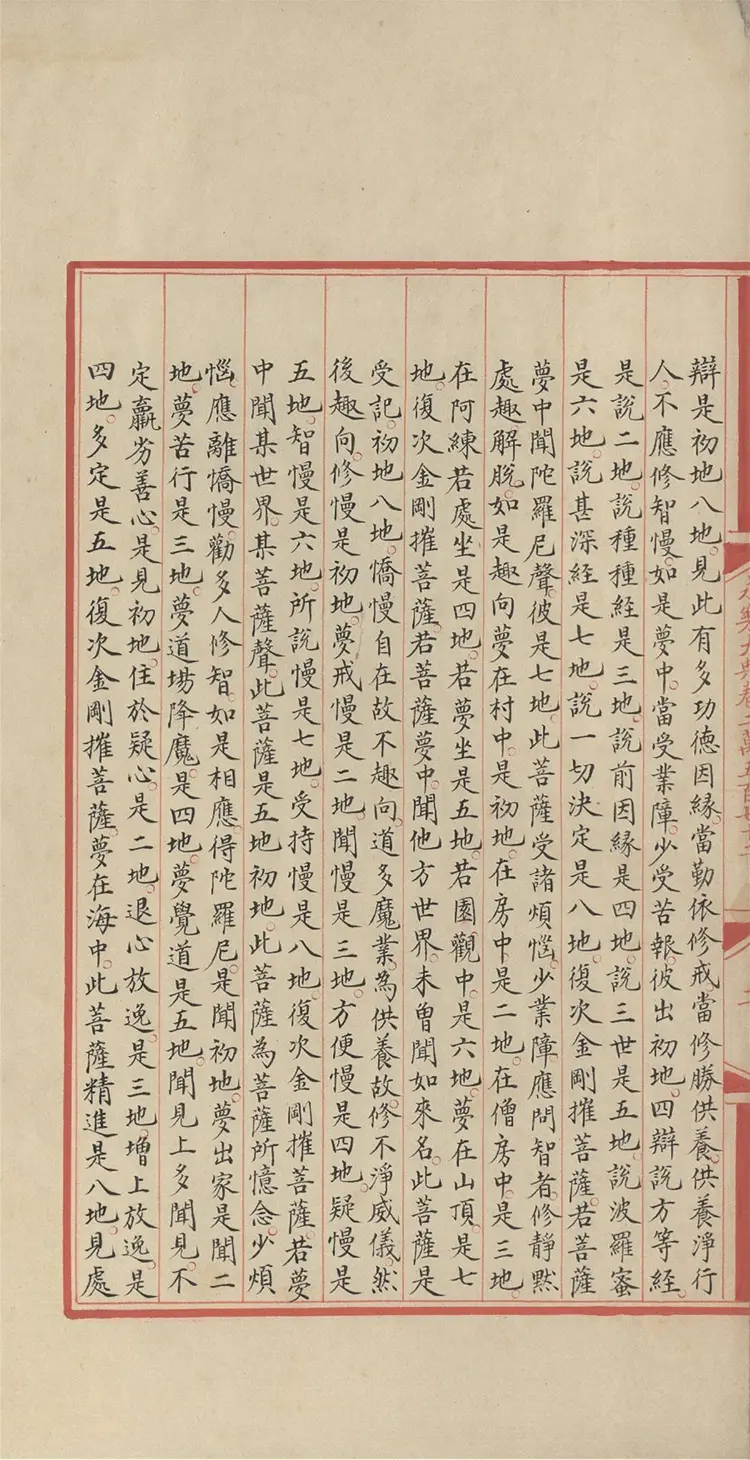 辯是初地八地。見此有多功德因緣。當勤依修戒。當修勝供養。供養淨行
人。不應修智慢。如是夢中。當受業障。少受苦報。彼出初地。四辯說方等經。
是說二地。說種種經是三地。說前因緣是四地。說三世是五地。說波羅蜜
是六地。說甚深經是七地。說一切決定是八地。復次金剛摧菩薩。若菩薩
夢中聞陀羅尼聲。彼是七地。此菩薩受諸煩惱。少業障應問智者。修靜默
處趣解脫。如是趣向夢在村中。是初地。在房中。是二地。在僧房中。是三地。
在阿練若處坐是四地。若夢坐是五地。若園觀中。是六地。夢在山頂。是七
地。復次金剛摧菩薩。若菩薩夢中。聞他方世界。未曾聞如來名。此菩薩是
受記。初地八地。憍慢自在故不趣向。道多魔業。為供養故。修不淨威儀。然
後趣向。修慢是初地。夢戒慢是二地。聞慢是三地。方便慢是四地。疑慢是
五地。智慢是六地。所說慢是七地。受持慢是八地。復次金剛摧菩薩。若夢
中聞某世界。某菩薩聲。此菩薩是五地初地。此菩薩為菩薩所憶念。少煩
惱。應離憍慢。勸多人修智。如是相應。得陀羅尼。是聞初地。夢出家是聞二
地。夢苦行是三地。夢道場降魔。是四地。夢覺道是五地。聞見上多聞見。不
定羸劣善心。是見初地。住於疑心。是二地。退心放逸。是三地。增上放逸。是
四地。多定是五地。復次金剛摧菩薩。夢在海中。此菩薩精進是八地。見處